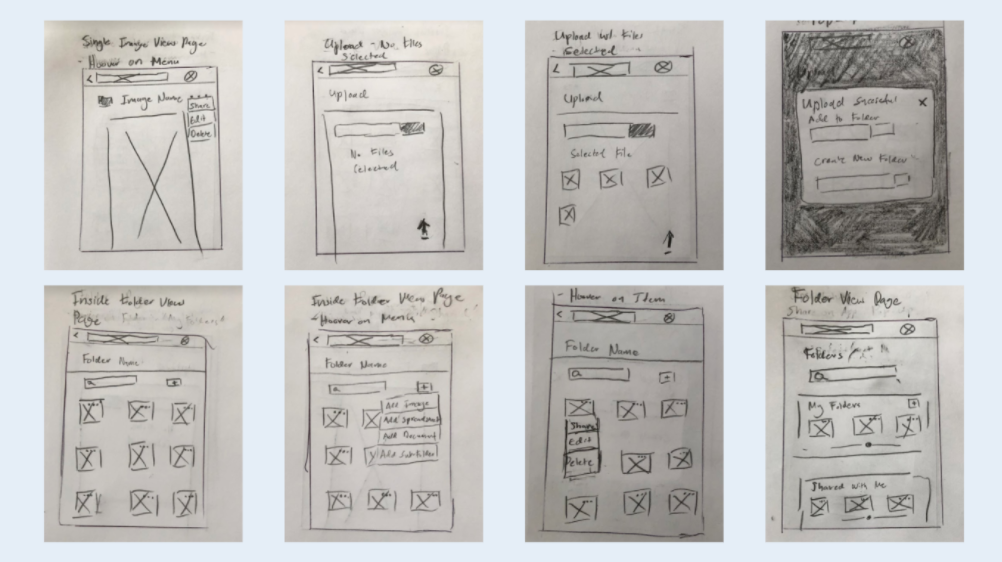 Single Image View Page
- Hoover on Menu
<
Image Name
Share
Edit
Delete
Upload - No Files
Selected
<
Upload
No Files
Selected
Upload
<
Upload
Selected File
Upload
Upload Sucessful X
Add to Folder
Create New Folder
Inside Folder View
Page
<
Folder Name
Inside Folder View Page
- Hoover on Menu
<
Folder Name
+
Add Image
Add Spreadsheet
Add Document
Add Sub-folder
- Hoover on Item
<
Folder Name
+
Share
Edit
Delete
Folder View Page
Folders
My Folders +
Shared with Me